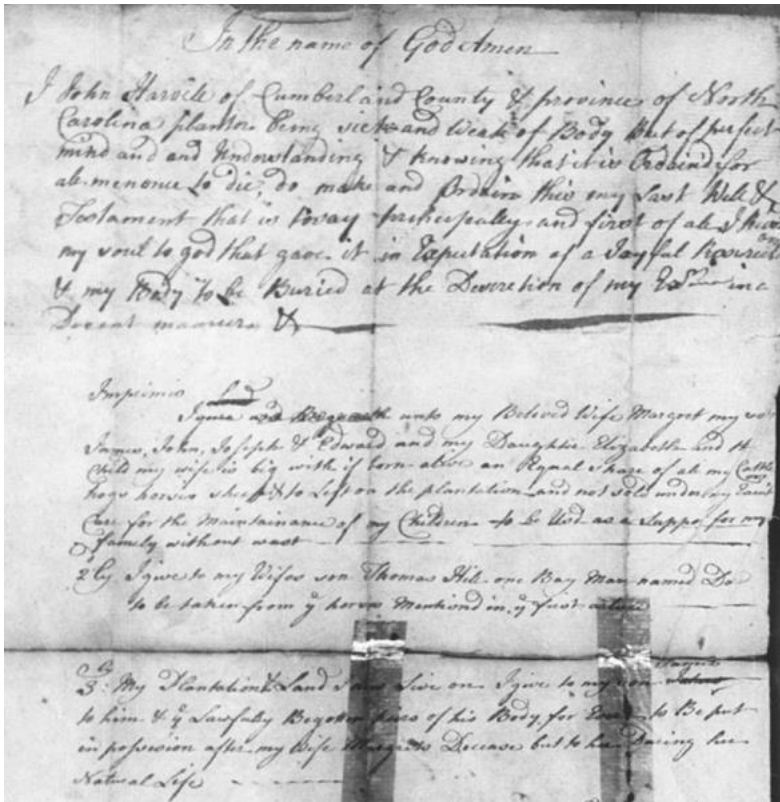 In the name of God Amen
I John Harvile of Cumberland County & province of North
Carolina planter being sick and Weak of Body But of perfect
mind and and Understanding & knowing that it is Ordaind for
all men once to die, do make and Ordain this my Last Will &
Testament that is to say principally and first of all I
my soul to god that gave it in Expectation of a Joyful
& my Body to be Buried at the Descretion of my in a
Decent manner &
Imprimis
I give and Bequeath unto my Beloved Wife Margret my
James, John, Joseph & Edward and my Daughter Elizabeth and
Child my wife is big with if born alive an Equal share of all my Cattle
hogs horses sheep & to Left on the plantation and not sold
Care for the Maintainance of my Children to be Usd as a for my
family without wast
2 ly I give to my Wifes son Thomas Hill one Bay Mare named
to be taken from y horses Mentiond in y first
ly
3: My Plantation & Land I now Live on I give to my son
to him & y Lawfully Begotten of his Body for Ever to Be put
in possession after my Wife Margrets Decease but to her During her
Natural Life